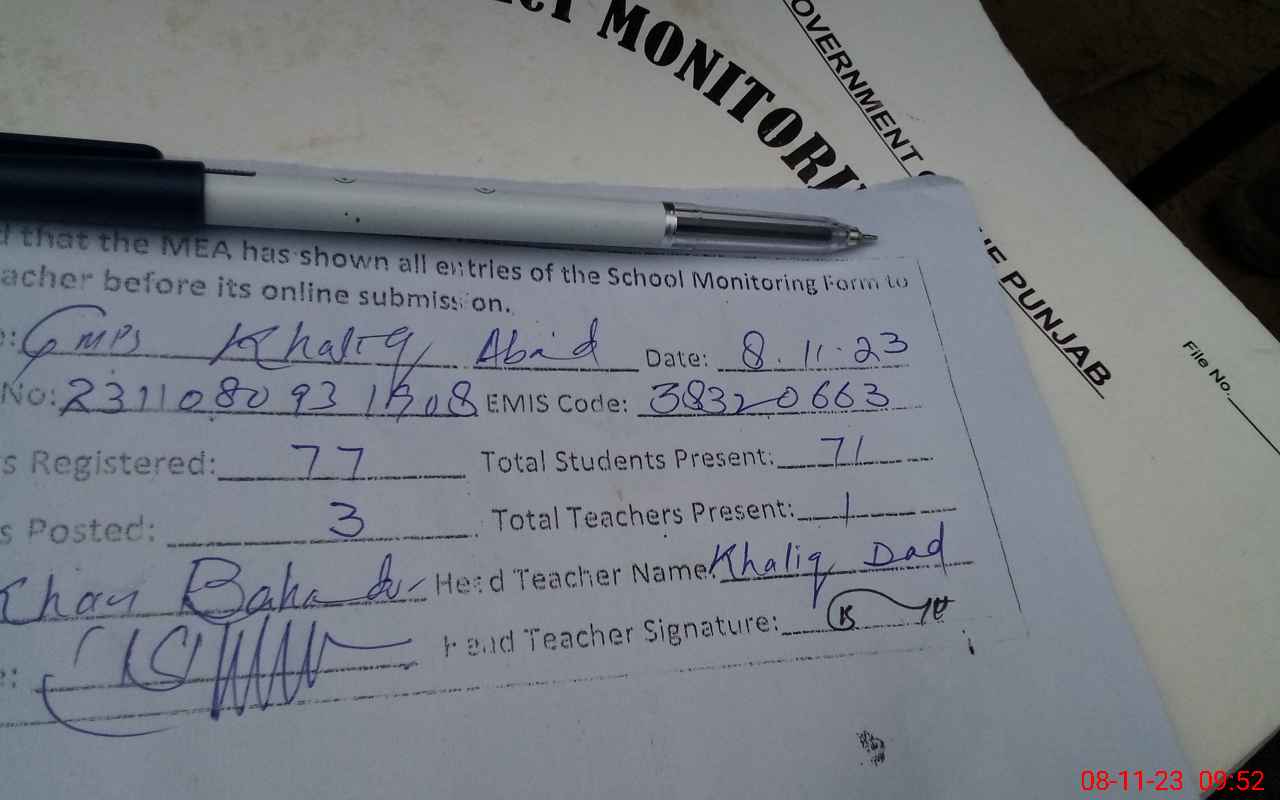 MONITORI
OVERNMENT
HE PUNJAB
File No.
d that the MEA has shown all entries of the School Monitoring Form to
acher before its online submission.
GMPS Khaliq Abad Date: 8.11.23
No: EMIS Code: 38320663
s Registered: 77 Total Students Present: 71
s Posted: 3 Total Teachers Present: 1
Khan Bahadur Head Teacher Name: Khaliq Dad
Head Teacher Signature:
08-11-23 09:52